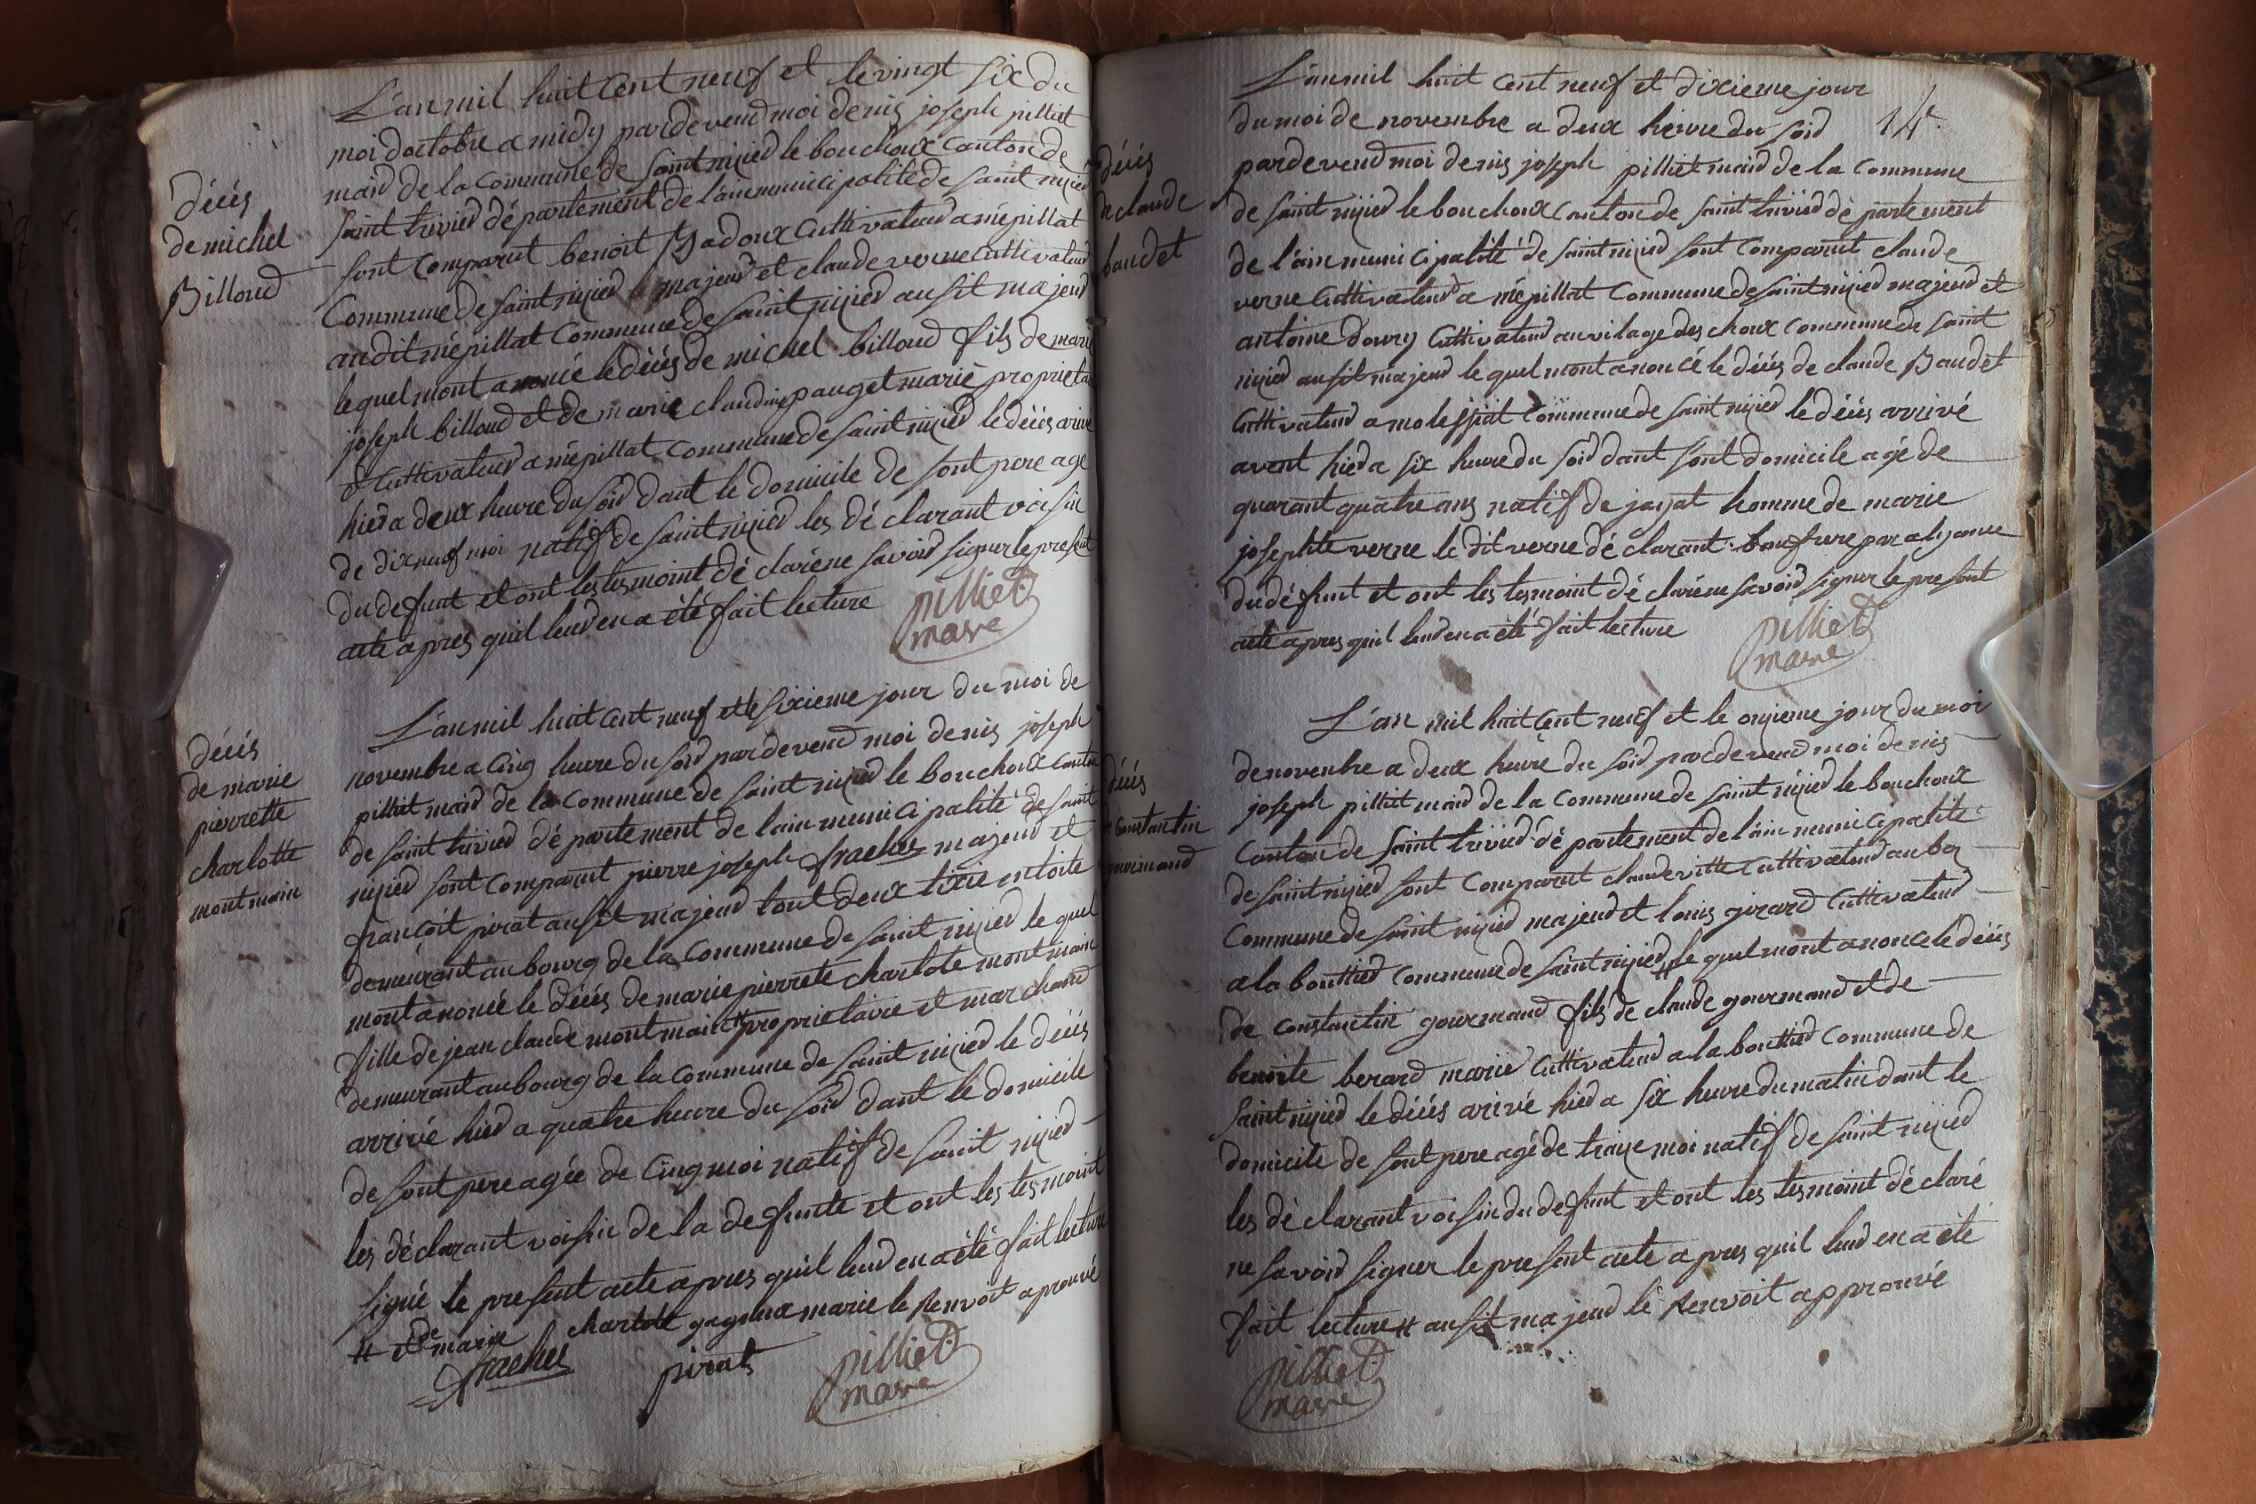 L'an mil huit cent neuf et le vingt six du
moi doctobre a midy pardevend moi denis joseph pilliet
maird de la commune de saint nizied le bouchoux canton de
saint trivied département de l'ain municipalité de saint nizied
sont comparut benoit Badoux cultivateud a mépillat
commune de saint nizied majeud et claude verne cultivateud
audit mépillat commune de saint nizied ausit majeud
lequel mont anoncé le décés de michel billoud fils de marie
joseph billoud et de marie claudine pauget marié propriétai
et cultivateud a mépillat commune de saint nizied le décés arivé
hied a deux heure du soid dant le domicile de sont pere agé
de dix neuf moi natif de saint nizied les déclarant voisin
du defunt et ont les tesmoint déclaré ne savoid signer le présent
acte apres quil leud en a été fait lecture
pilliet
maire
décés
de michel
Billoud
L'an mil huit cent neuf et le sixieme jour du moi de
novembre a cinq heure du soid pardevend moi denis joseph
pilliet maird de la commune de saint nizied le bouchoux canton
de saint trivied département de lain municipalité de saint
nizied sont comparut pierre joseph frachet majeud et
françoit pirat ausit majeud tout deux tixié en toile
demeurant au bourg de la commune de saint nizied le quel
mont anoncé le décés de marie pierrete charlote montmain
fille de jean claude montmain # propriétaire et marchand
demeurant au bourg de la commune de saint nizied le décés
arrivé hied a quatre heure du soid dant le domicile
de sont pere agée de cinq moi natif de saint nizied
les déclarant voisin de la defunte et ont les tesmoint
signé le present acte apres quil leud en a été fait lecture
# et de marie charlotte gagneux marié le renvoit aprouvé
frachet pirat pilliet
maire
décés
de marie
pierrette
charlotte
montmain
14.
L'an mil huit cent neuf et dixieme jour
du moi de novembre a deux heure du soid
pardevend moi denis joseph pilliet maird de la commune
de saint nizied le bouchoux canton de saint trivied département
de l'ain municipalité de saint nizied sont comparut claude
verne cultivateud a mépillat commune de saint nizied majeud et
antoine doury cultivateud au vilage des choux commune de saint
nizied ausit majeud le quel mont anoncé le décés de claude Baudet
cultivateud a molessiat commune de saint nizied le décés arrivé
avent hied a six heure du soid dant sont domicile agé de
quarant quatre ans natif de jayat homme de marie
josephte verne le dit verne déclarant beaufrere par alyance
du défunt et ont les tesmoint déclaré ne savoid signer le present
acte apres quil leud en a été fait lecture
pilliet
maire
décés
de claude
baudet
L'an mil huit cent neuf et le onzieme jour du moi
de novembre a deux heure du soid pardevend moi denis
joseph pilliet maird de la commune de saint nizied le bouchoux
canton de saint trivied département de l'ain municipalité
de saint nizied sont comparut claude vitte cultivateud au bos
commune de saint nizied majeud et louis girard cultivateud
a la bouttied commune de saint nizied # le quel mont anoncé le décés
de constantin gourmand fils de claude gourmand et de
benoite berard marié cultivateud a la bouttied commune de
saint nizied le décés arivé hied a six heure du matin dant le
domicile de sont pere agé de traize moi natif de saint nizied
les déclarant voisin du defunt et ont les tesmoint déclaré
ne savoid signer le present acte apres quil leud en a été
fait lecture # ausit majeud le renvoit approuvé
pilliet
maire
décés
constantin
gourmand